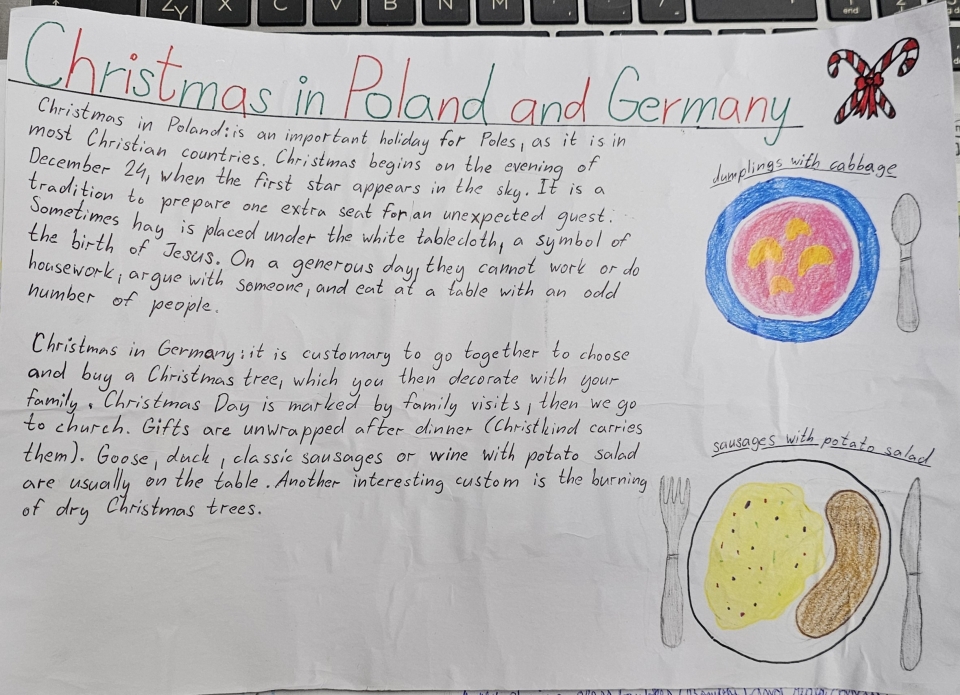 Christmas in Poland and Germany
Christmas in Poland: is an important holiday for Poles, as it is in
most Christian countries. Christmas begins on the evening of
December 24, when the first star appears in the sky. It is a
tradition to prepare one extra seat for an unexpected guest.
Sometimes hay is placed under the white tablecloth, a symbol of
the birth of Jesus. On a generous day, they cannot work or do
housework, argue with someone, and eat at a table with an odd
number of people.
Christmas in Germany: it is customary to go together to choose
and buy a Christmas tree, which you then decorate with your
family. Christmas Day is marked by family visits, then we go
to church. Gifts are unwrapped after dinner (Christkind carries
them). Goose, duck, classic sausages or wine with potato salad
are usually on the table. Another interesting custom is the burning
of dry Christmas trees.
dumplings with cabbage
sausages with potato salad
Z Y X C V B N M
1
end